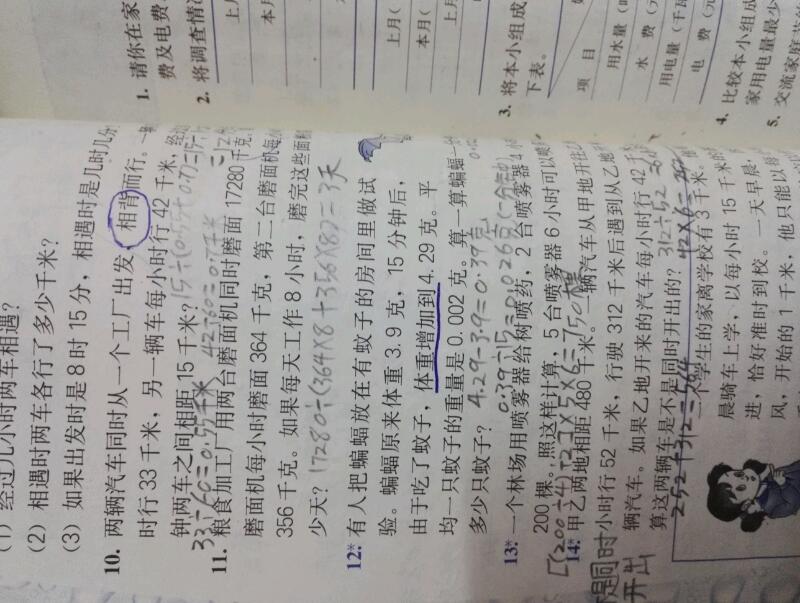 1. 请你在家
费及电费,
2. 将调查情况
上月
本月
上月(
本月(
上月
3. 将本小组成
下表。
项 目
用水量(
水 费(元
用电量(千瓦
电 费(元
4. 比较本小组成
家用电量最少
5. 交流家庭节
(1) 经过几小时两车相遇?
(2) 相遇时两车各行了多少千米?
(3) 如果出发时是8时15分,相遇时是几时几分
10. 两辆汽车同时从一个工厂出发,相背而行。一辆
时行33千米,另一辆车每小时行42千米,经过
钟两车之间相距15千米?
33÷60=0.55千米 42÷60=0.7千米 15÷(0.55+0.7)=
11. 粮食加工厂用两台磨面机同时磨面17280千克,
磨面机每小时磨面364千克,第二台磨面机每小
356千克。如果每天工作8小时,磨完这些面粉
少天?
17280÷(364×8+356×8)=3天
12.* 有人把蝙蝠放在有蚊子的房间里做试
验。蝙蝠原来体重3.9克,15分钟后,
由于吃了蚊子,体重增加到4.29克。平
均一只蚊子的重量是0.002克。算一算蝙蝠一
多少只蚊子?
4.29-3.9=0.39克
0.39÷15=0.026克(一分钟
13.* 一个林场用喷雾器给树喷药,2台喷雾器4小
200棵。照这样计算,5台喷雾器6小时可以喷
[(200÷4)÷2]×5×6=750棵
14.* 甲乙两地相距480千米。一辆汽车从甲地开往乙
小时行52千米,行驶312千米后遇到从乙地
辆汽车。如果乙地开来的汽车每小时行42千
算这两辆车是不是同时开出的?
312÷52
42×6=252
252+312=564
不是同时
开出
一个学生的家离学校有3千米。他
晨骑车上学,以每小时15千米的
进,恰好准时到校。一天早晨,
风,开始的1千米,他只能以